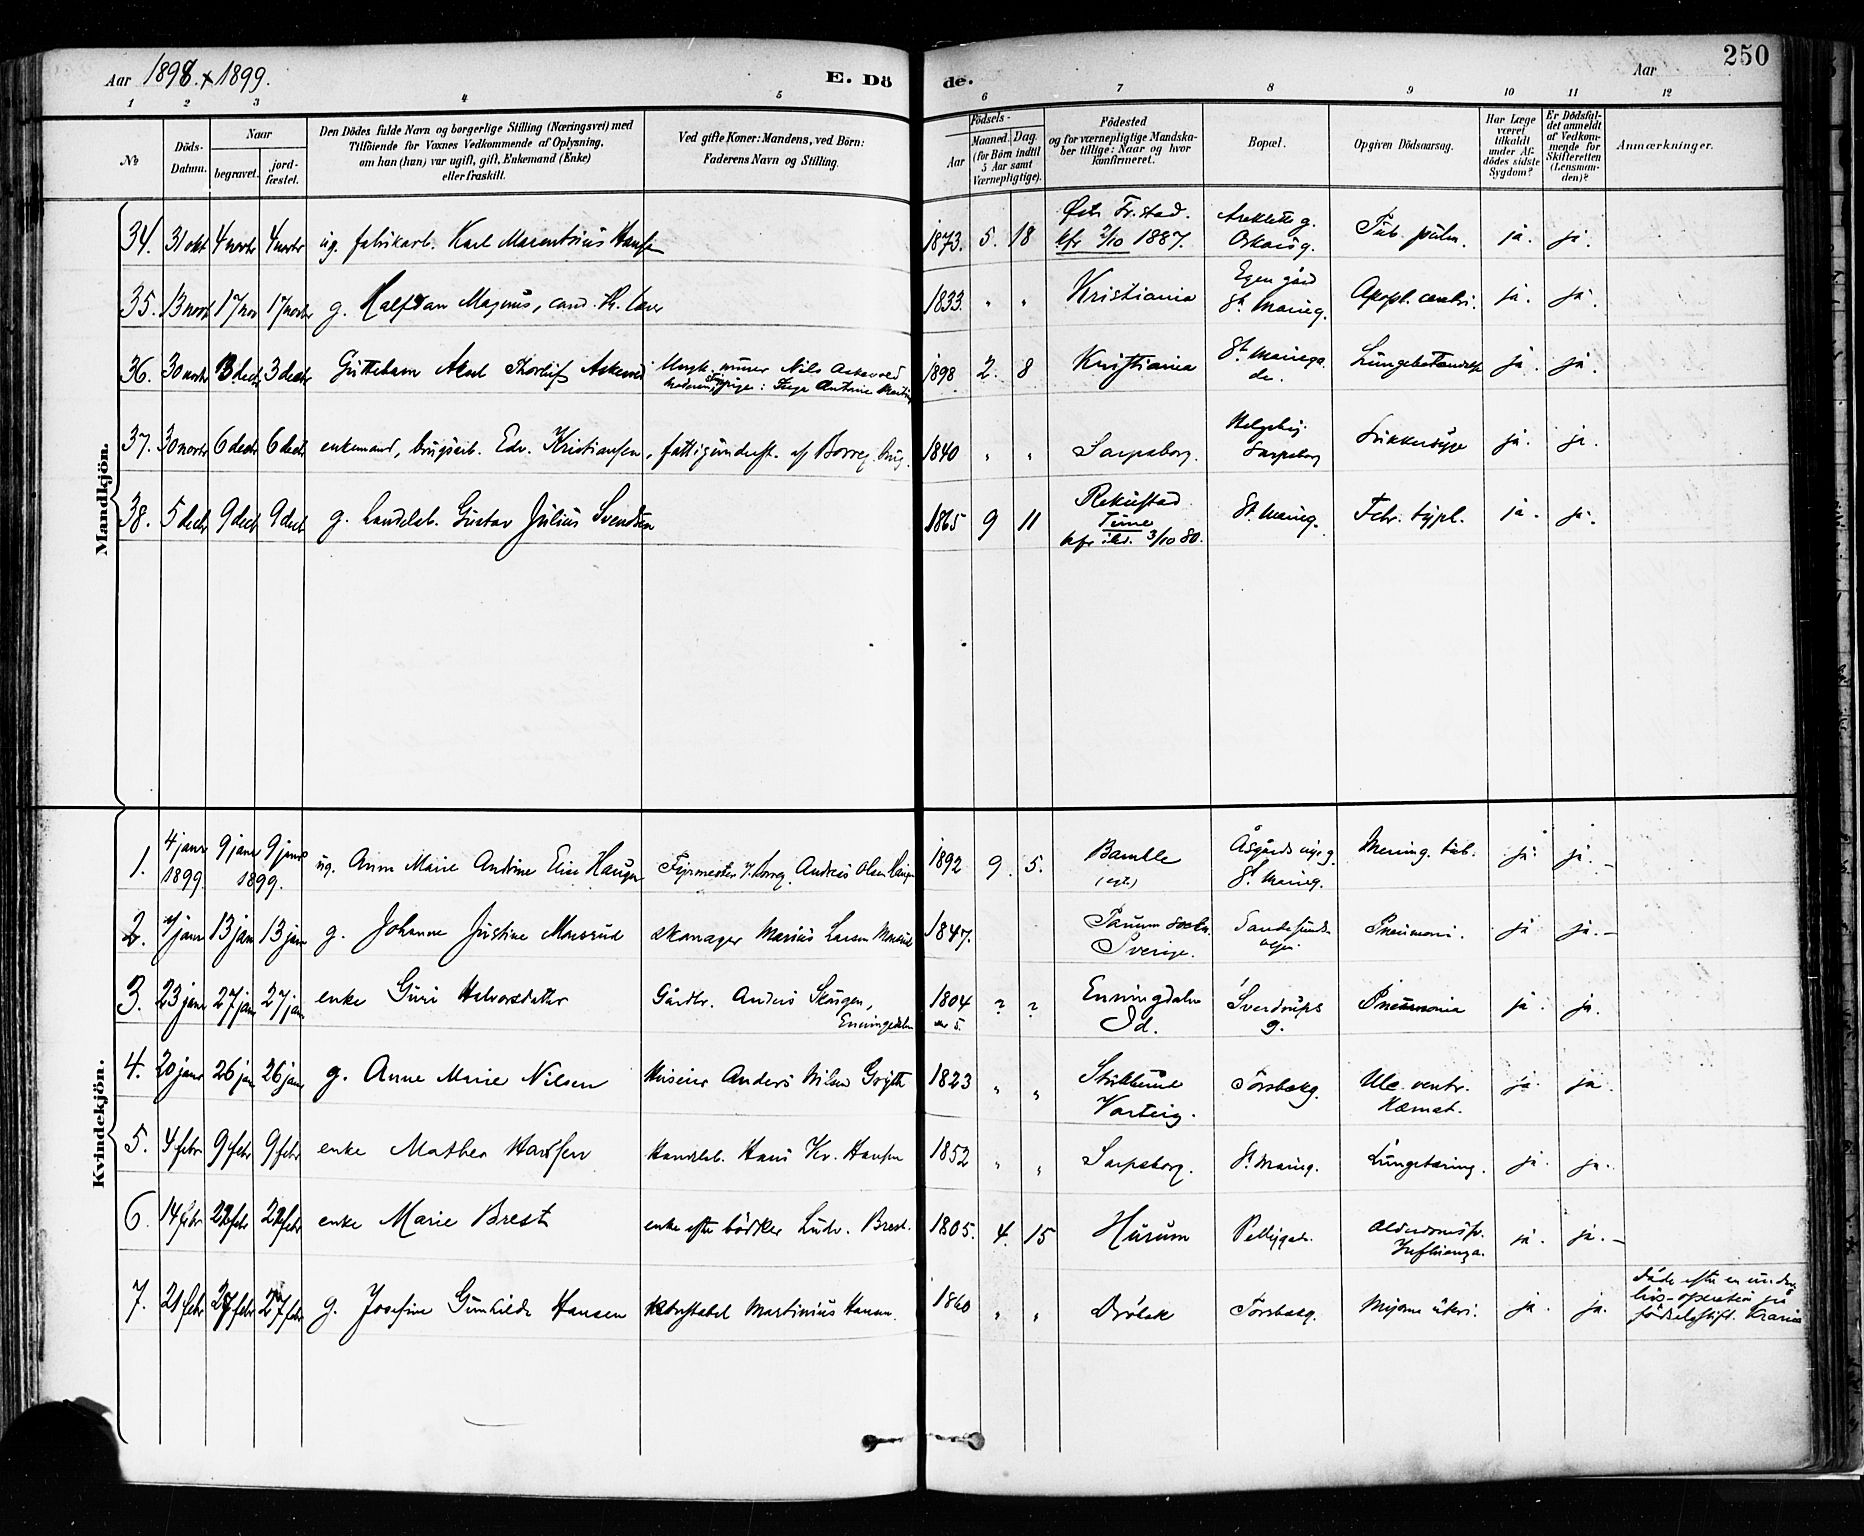 Aar 1898 + 1899.
E. Døde.
Aar
250
1 2 3 4 5 6 7 8 9 10 11 12
No
Døds-Datum.
Naar
begravet.
jord-fæstet.
Den Dödes fulde Navn og borgerlige Stilling (Næringsvei) med
Tilföiende for Voxnes Vedkommende af Oplysning,
om han (hun) var ugift, gift, Enkemand (Enke)
eller fraskilt.
Ved gifte Koner: Mandens, ved Börn:
Faderens Navn og Stilling.
Födsels-
Aar
Maaned. Dag.
(for Börn indtil
5 Aar samt
Værnepligtige).
Födested
og for værnepligtige Mandska-
ber tillige: Naar og hvor
konfirmeret.
Bopæl.
Opgiven Dödsaarsag.
Har Læge
været
tilkaldt
under Af-
dödes sidste
Sygdom?
Er Dödsfal-
det anmeldt
af Vedkom-
mende for
Skifteretten
(Lensman-
den)?
Anmærkninger.
Mandkjön.
34. 31 okt 4 novbr 4 novbr ug. fabrikarb. Karl Marentsius Hansen 1873. 5. 18 Østr Fr.stad. kfr 2/10 1887. Oskarsg. Tub. pulm. ja. ja.
35. 13 novb 17 nov 17 novbr g. Halfdan Magnus, cand. 1833. " " Kristiania Egen gård St. Marieg. Apopl. cerebri. ja. ja.
36. 30 novbr 3 decbr 3 decbr Guttebarn Aksel Thorleif Murer Nils 1898 2. 8 Kristiania St. Mariega de. Lungebetændelse ja. ja.
37. 30 novbr 6 decbr 6 decbr enkemand, brugsarb. Edv. Kristiansen, fattigunderst. af Borreg. brug. 1840 " " Sarpsborg. Sarpsborg Sukkersyge ja. ja.
38. 5 decbr 9 decb 9 decb g. handelsb. Gustav Julius Svendsen 1865 9 11 Tune kfr ibd. 3/10 80. St. Marieg. Febr. typh. ja. ja.
Kvindekjön.
1. 4 janr 1899 9 janr 9 janr 1899. ug. Anna Marie Andrine Elise Haugen Fyrmester v/ Borreg. Andreas Olsen Haugen 1892 9. 5. Bamble St. Marieg. Mening. tub. ja. ja.
2. 7 janr 13 jan 13 jan g. Johanne Justine Monsrud skomager Marius Larsen Monsrud 1847. Tanum Sverige. Sandesunds veien. Pneumoni. ja ja.
3. 23 janr 27 jan 27 jan enke Guri Halvorsdatter Gårdbr. Anders Skogen, Enningdalen 1804 ? ? Enningdalen Id. Sverdrups g. Pneumonia ja. ja.
4. 20 janr 26 jan 26 jan g. Anne Marie Nilsen Huseier Anders Nilsen 1823 " " Varteig. Torsbekg. Ulc. ventr. Hæmat. ja. ja.
5. 4 febr 9 febr 9 febr enke Mathea Hansen Handelsb. Hans Kr. Hansen 1852 " " Sarpsborg. St. Marieg. Lungetæring. ja. ja.
6. 14 febr 22 febr 22 febr enke Marie Brest enke efter bödker Ludv. Brest. 1805. 4. 15 Hurum Pellygad. Alderdomssv. Influenza. ja. ja.
7. 21 febr 27 febr 27 febr g. Josefine Gunhilde Hansen Martinius Hansen. 1860 " " Dröbak Torsbekg. Myoma uteri. ja. ja. döde efter en underlivs-operation på födselsstift. Krania